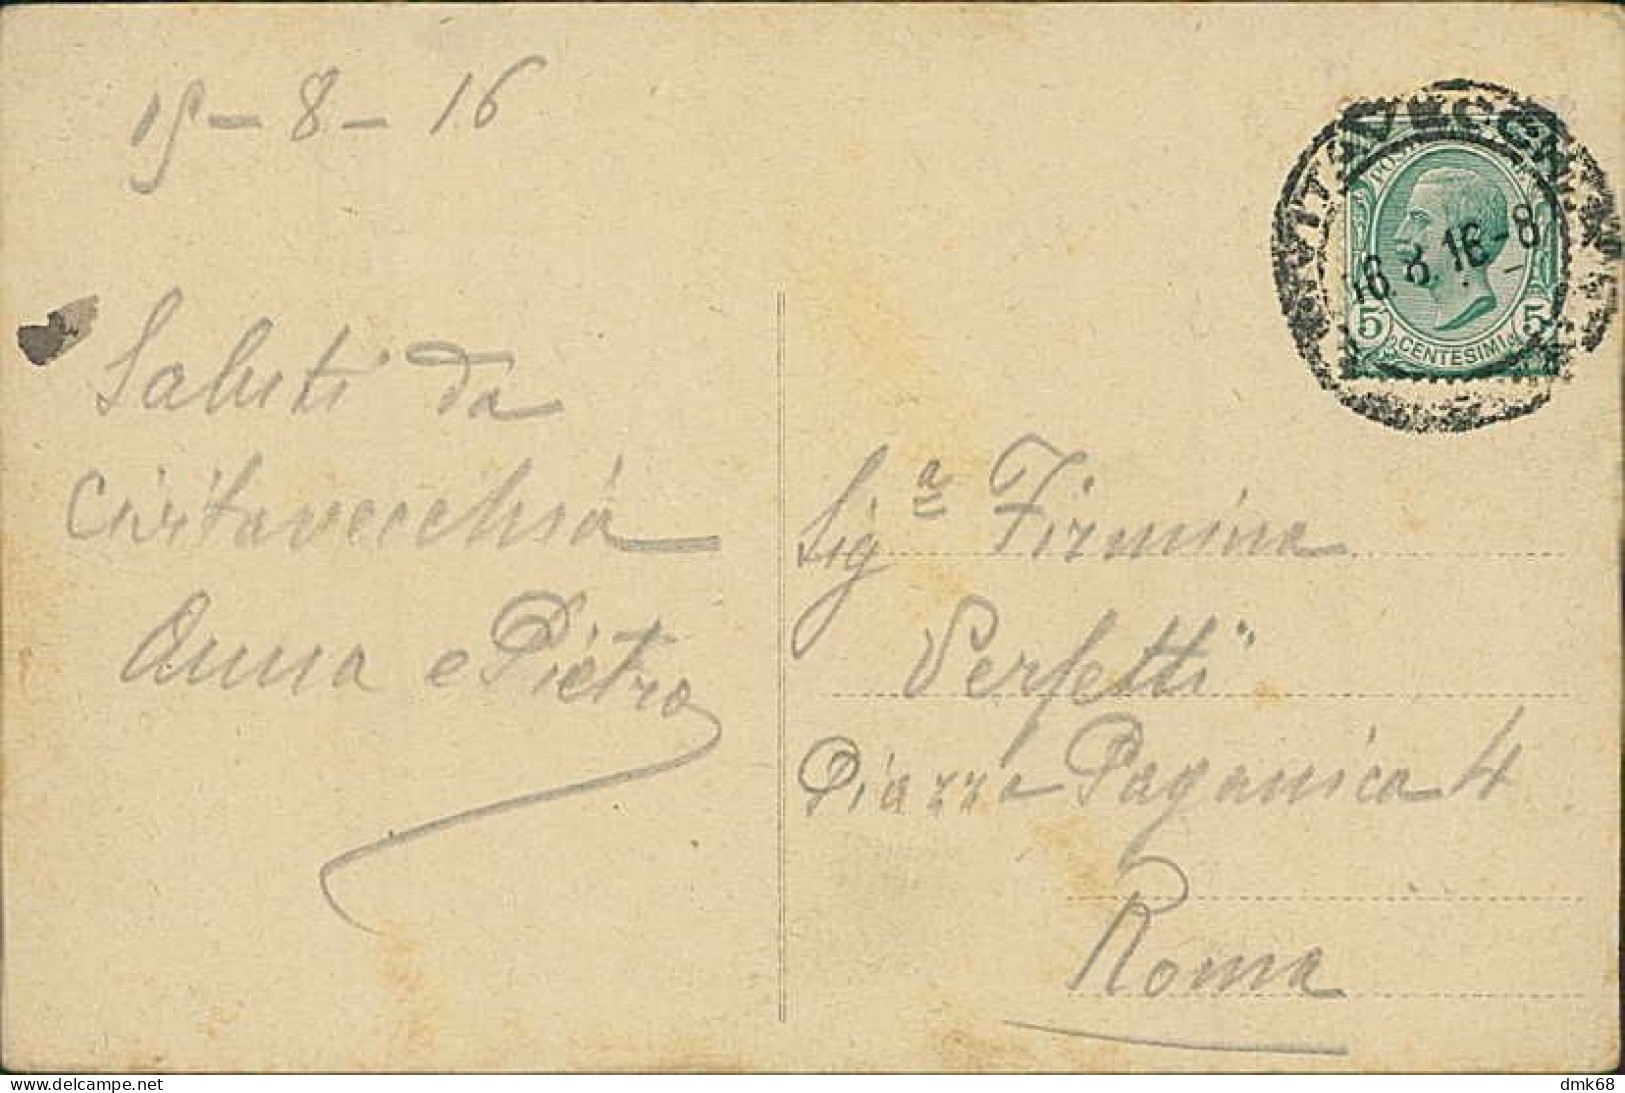 15-8-16
Saluti da
Civitavecchia
Anna e Pietro
CIVITAVECCHIA
16.8.16-8
POSTE
5 CENTESIMI 5
Sig.a Firmina
Perfetti
Piazza Paganica 4
Roma
delcampe.net
dmk68